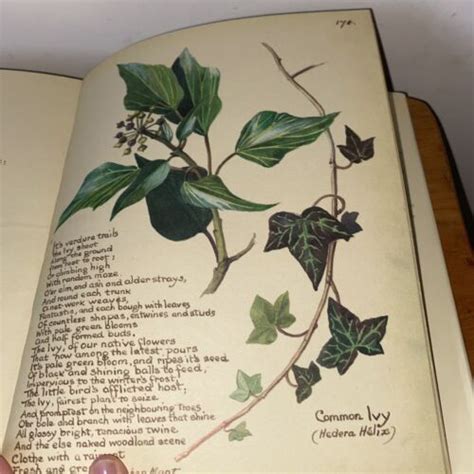 176.
It's verdure trails
the Ivy shoot
along the ground
from root to root;
Or climbing high
With random maze
O'er elm, and ash and alder strays,
And round each trunk
a net-work weaves,
Fantastic, and each bough with leaves
Of countless shapes, entwines and studs
With pale green blooms
And half formed buds.
The Ivy, of our native flowers
That now among the latest pours
It's pale green bloom, and ripes it's seed
Of black and shining balls to feed,
Impervious to the winter's frost,
The little bird's afflicted host;
The Ivy, fairest plant to seize
And promptest on the neighbouring trees,
O'er bole and branch with leaves that shine
All glossy bright, tenacious twine
And the else naked woodland scene
Clothe with a raiment
Fresh and green
Mant
Common Ivy
(Hedera Hélix)